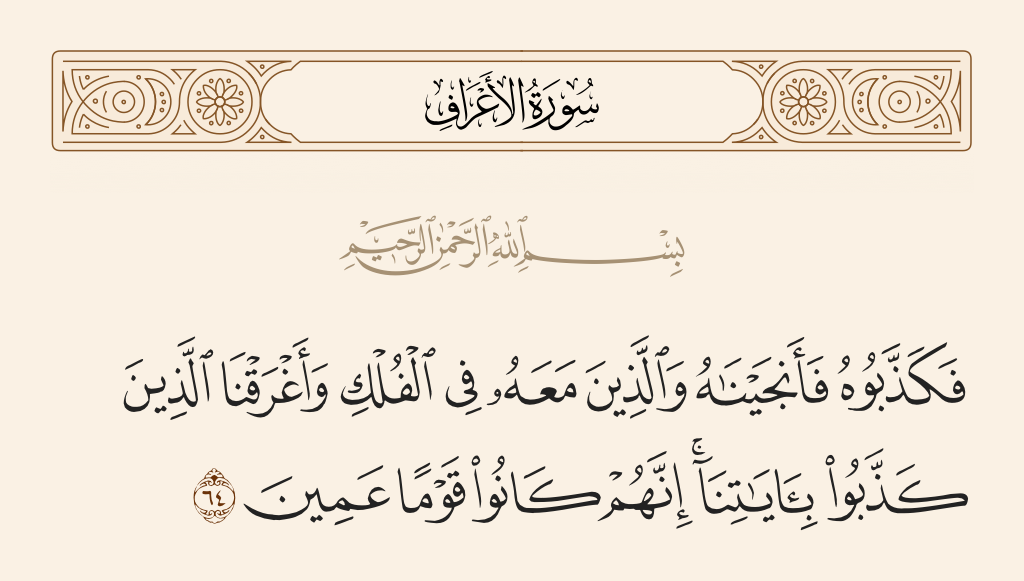 سُورَةُ الأَعْرَافِ
بِسْمِ ٱللَّهِ ٱلرَّحْمَٰنِ ٱلرَّحِيمِ
فَكَذَّبُوهُ فَأَنجَيْنَٰهُ وَٱلَّذِينَ مَعَهُۥ فِى ٱلْفُلْكِ وَأَغْرَقْنَا ٱلَّذِينَ
كَذَّبُوا۟ بِـَٔايَٰتِنَآ ۚ إِنَّهُمْ كَانُوا۟ قَوْمًا عَمِينَ ٦٤